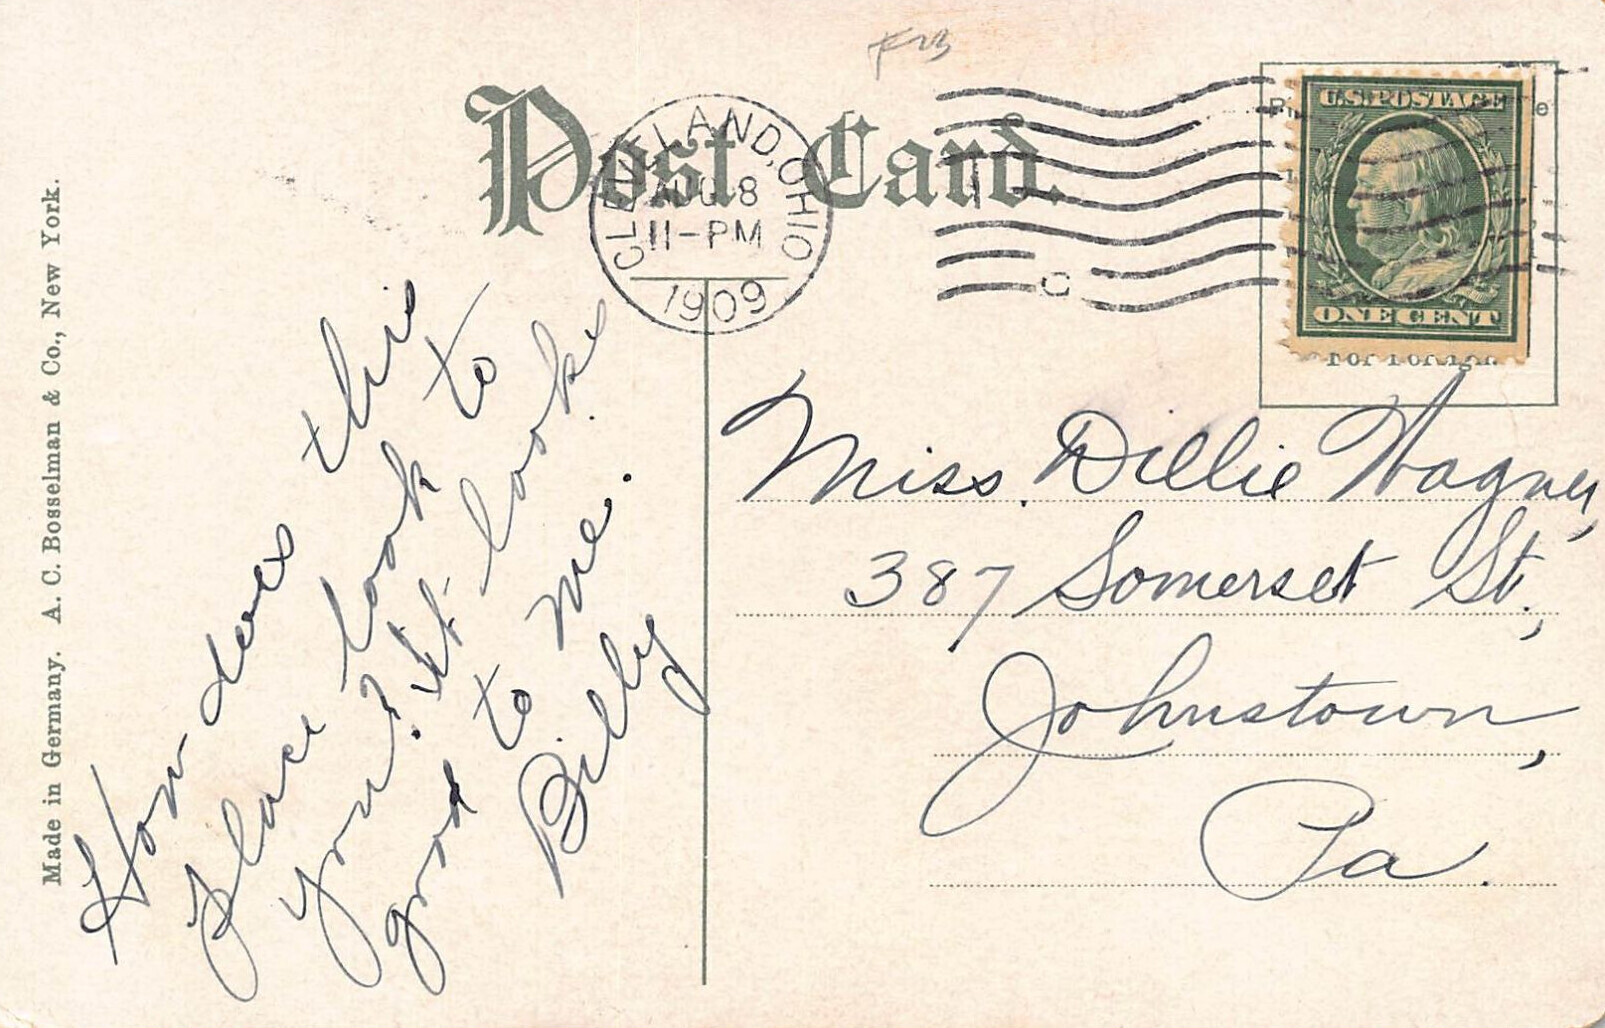 Post Card.
CLEVELAND, OHIO
AUG 8
11-PM
1909
U.S. POSTAGE
ONE CENT
Made in Germany. A. C. Bosselman & Co., New York.
How does this
place look to
you? It looks
good to me.
Billy
Miss. Dillie Wagner,
387 Somerset St.,
Johnstown,
Pa.